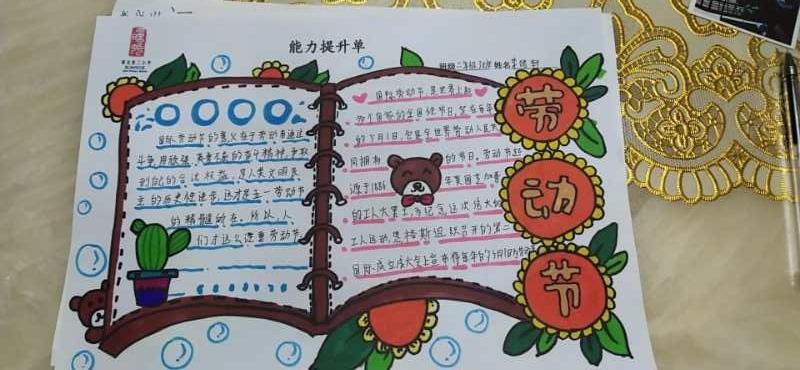 能力提升单
班级 二年级 姓名
国际劳动节的意义在于劳动者通过
斗争,用顽强、英勇不屈的奋斗精神,争取
到自己的合法权益,是人类文明民
主的历史性进步,这才是五一劳动节
的精髓所在。所以,人
们才这么注重劳动节
国际劳动节,是世界上
多个国家的全国性节日,定在每年
的5月1日,它是全世界劳动人民共
同拥有的节日。劳动节起
源于1886年美国芝加哥
的工人大罢工,为纪念这次伟大的
工人运动,恩格斯组织召开的第二
国际成立大会上宣布将每年的5月1日
劳
动
节